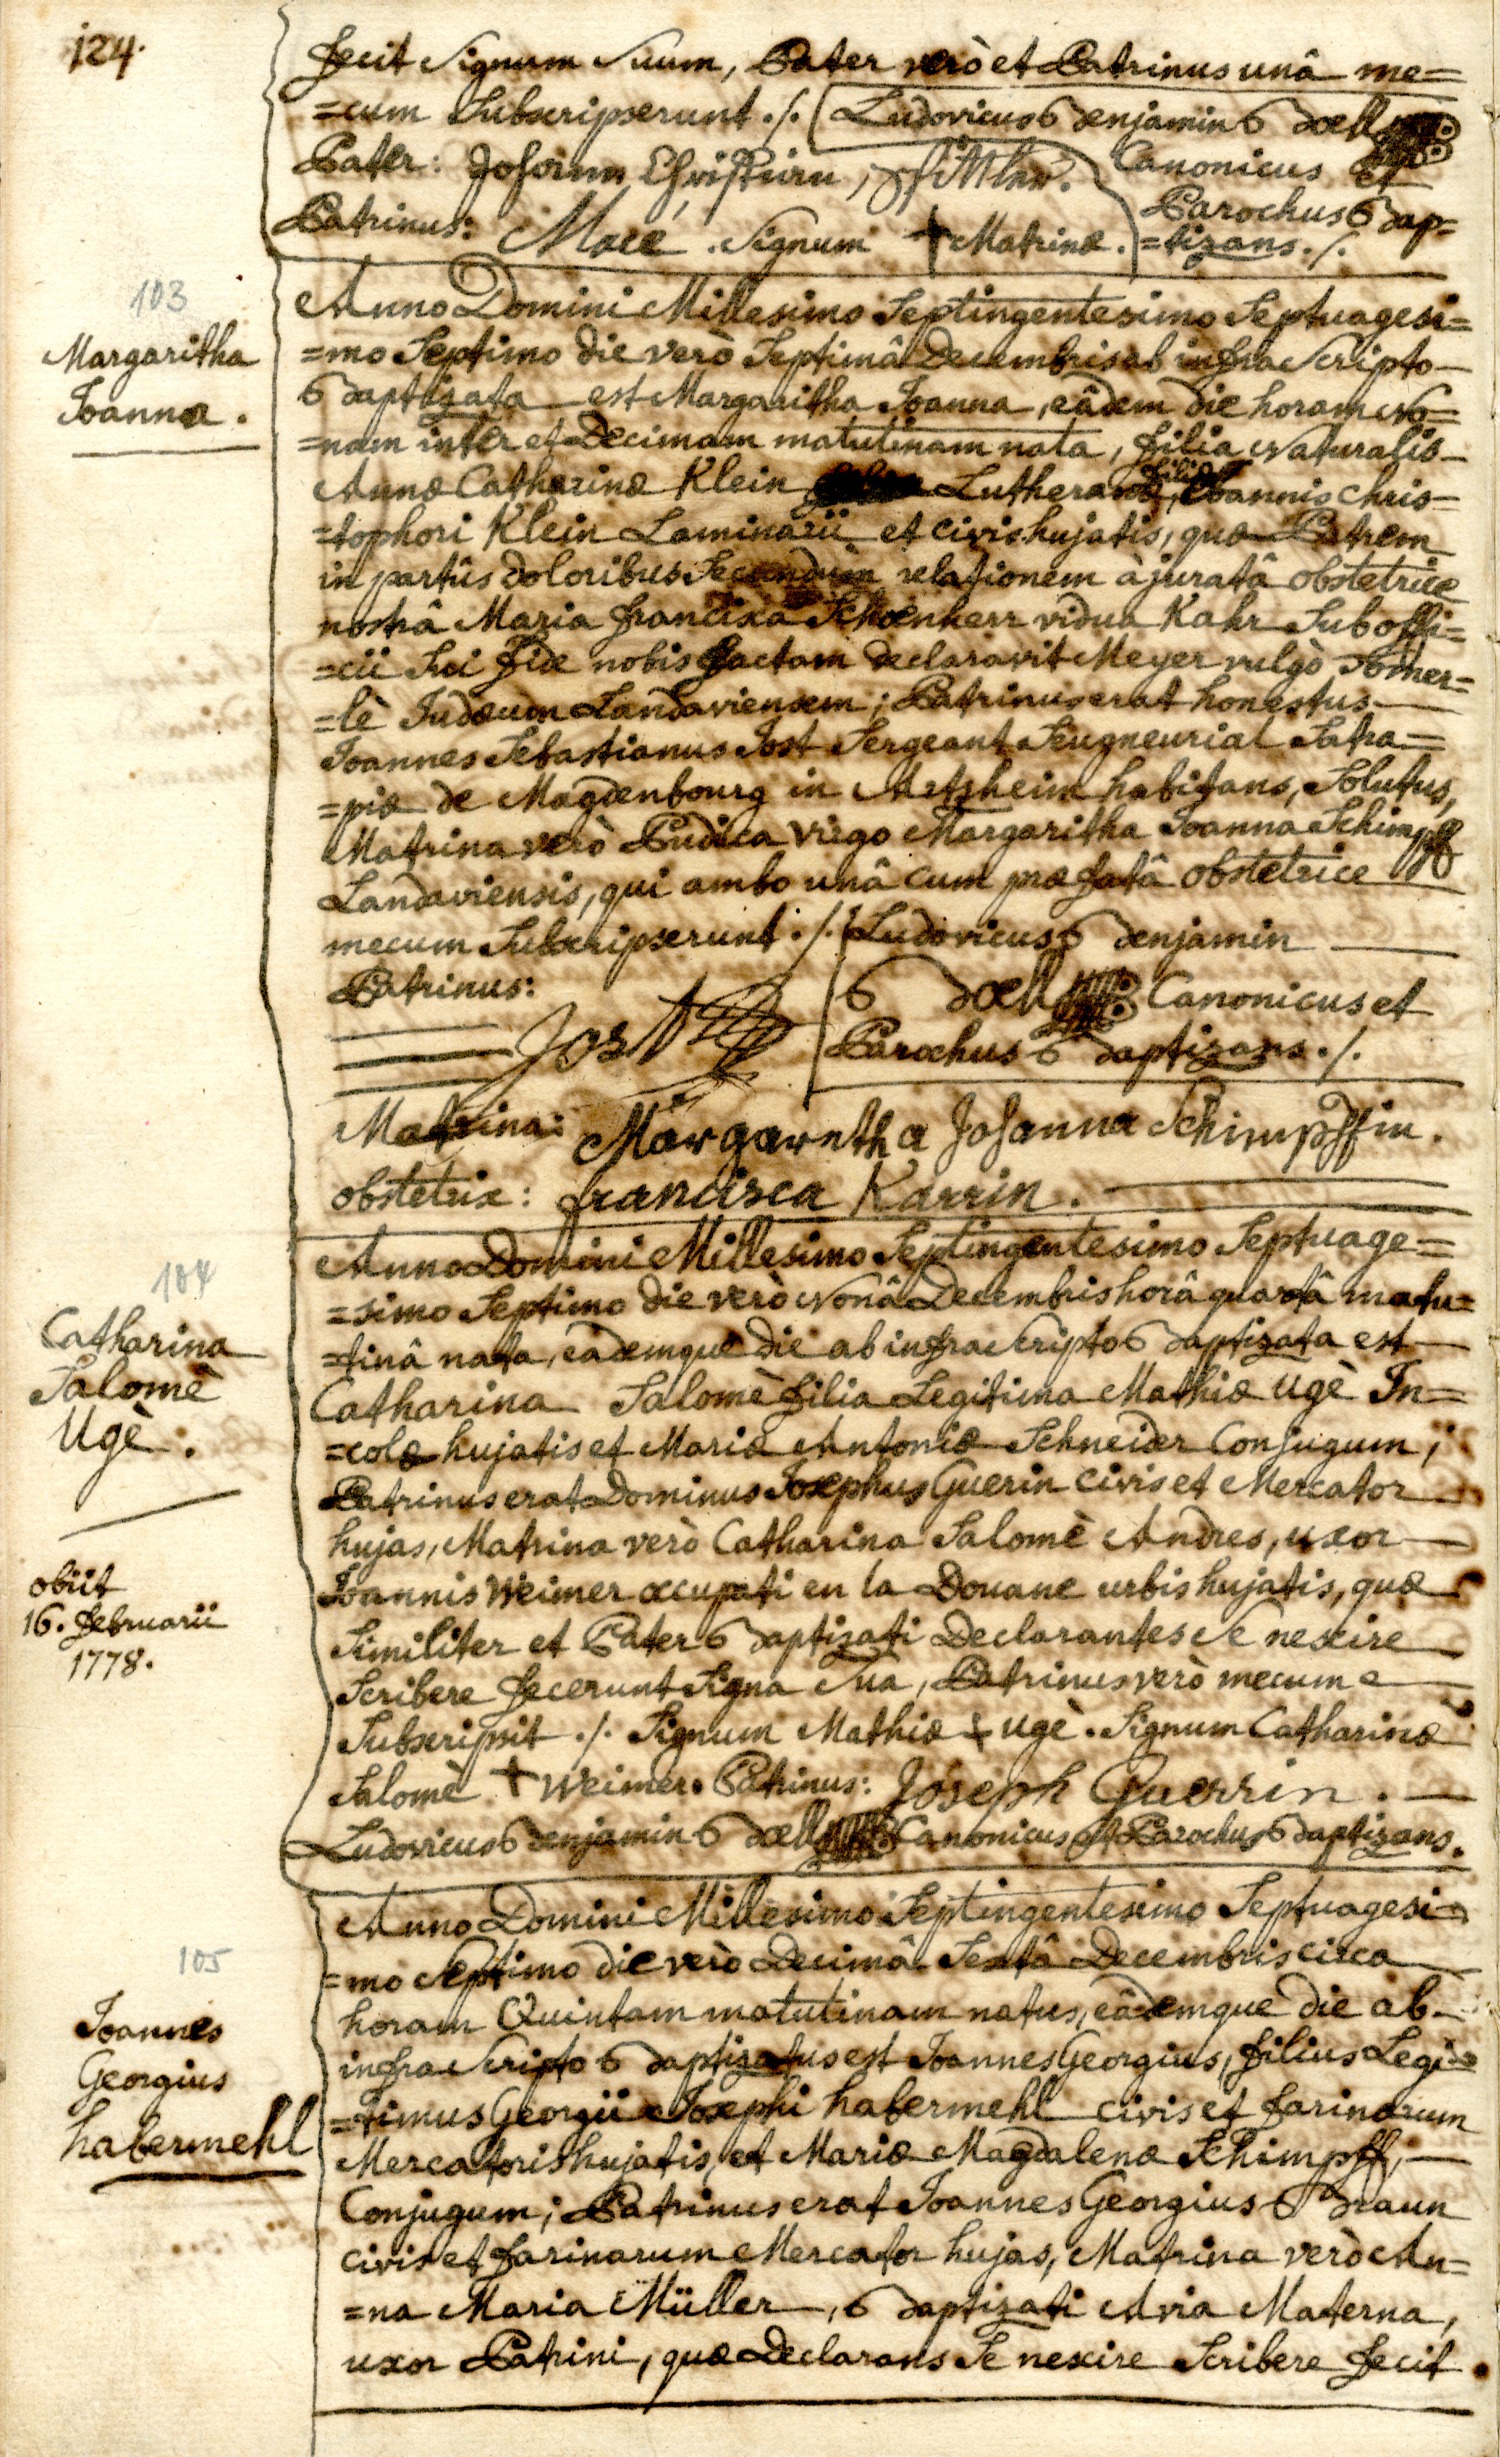 124.
fecit Signum Suum, Pater verò et Patrinus unâ me=
=cum Subscripserunt ./. Ludovicus Benjamin Boell
Pater: Johann Christian Canonicus et
Parochus Bap=
Patrinus: Macé. Signum + Matrinæ. =tizans ./.
103
Margaritha
Joanna.
Anno Domini Millesimo Septingentesimo Septuagesi=
=mo Septimo die verò Septimâ Decembris ab infra Scripto
Baptizata est Margaritha Joanna, eâdem die horam No=
=nam inter et Decimam matutinam nata, filia Naturalis
Annæ Catharinæ Klein Lutheranæ, filiæ Joannis Chris=
=tophori Klein Laminarii et civis hujatis, quæ Patrem
in partûs doloribus Secundùm relationem à juratâ obstetrice
nostrâ Maria francisca Schoenherr vidua Kahr Sub offi=
=cii Sui fide nobis factam declaravit Meyer vulgò Tomer=
=lè Judæum Landaviensem; Patrinus erat honestus
Joannes Sebastianus Jost Sergeant Seugneurial Satra=
=piæ de Magdenbourg in Artzheim habitans, Solutus,
Matrina verò Pudica Virgo Margaritha Joanna Schimpff
Landaviensis, qui ambo unâ cum præfatâ obstetrice
mecum Subscripserunt ./. Ludovicus Benjamin
Patrinus: Boell Canonicus et
Jost Parochus Baptizans ./.
Matrina: Margaretha Johanna Schimpffin.
obstetrix: francisca Karrin.
104
Catharina
Salomè
Ugè.
obiit
16. februarii
1778.
Anno Domini Millesimo Septingentesimo Septuage=
=simo Septimo die verò Nonâ Decembris horâ quartâ matu=
=tinâ nata, eademque die ab infra Scripto Baptizata est
Catharina Salomè filia Legitima Mathiæ Ugè In=
=colæ hujatis et Mariæ Antoniæ Schneider Conjugum;
Patrinus erat Dominus Josephus Guerin civis et Mercator
hujas, Matrina verò Catharina Salomè Andres, uxor
Joannis Weimer occupati en la Douane urbis hujatis, quæ
Similiter et Pater Baptizati Declarantes Se nescire
Scribere fecerunt Signa Sua, Patrinus verò mecum
Subscripsit ./. Signum Mathiæ + Ugè. Signum Catharinæ
Salomè + Weimer. Patrinus: Joseph Guerrin.
Ludovicus Benjamin Boell Canonicus et Parochus Baptizans.
105
Joannes
Georgius
habermehl
Anno Domini Millesimo Septingentesimo Septuagesi=
=mo Septimo die verò Decimâ Sextâ Decembris circa
horam Quintam matutinam natus, eâdemque die ab
infra Scripto Baptizatus est Joannes Georgius, filius Legi=
=timus Georgii Josephi habermehl civis et farinarum
Mercatoris hujatis, et Mariæ Magdalenæ Schimpff,
Conjugum; Patrinus erat Joannes Georgius Braun
civis et farinarum Mercator hujas, Matrina verò An=
=na Maria Müller, Baptizati Avia Materna,
uxor Patrini, quæ Declarans Se nescire Scribere fecit